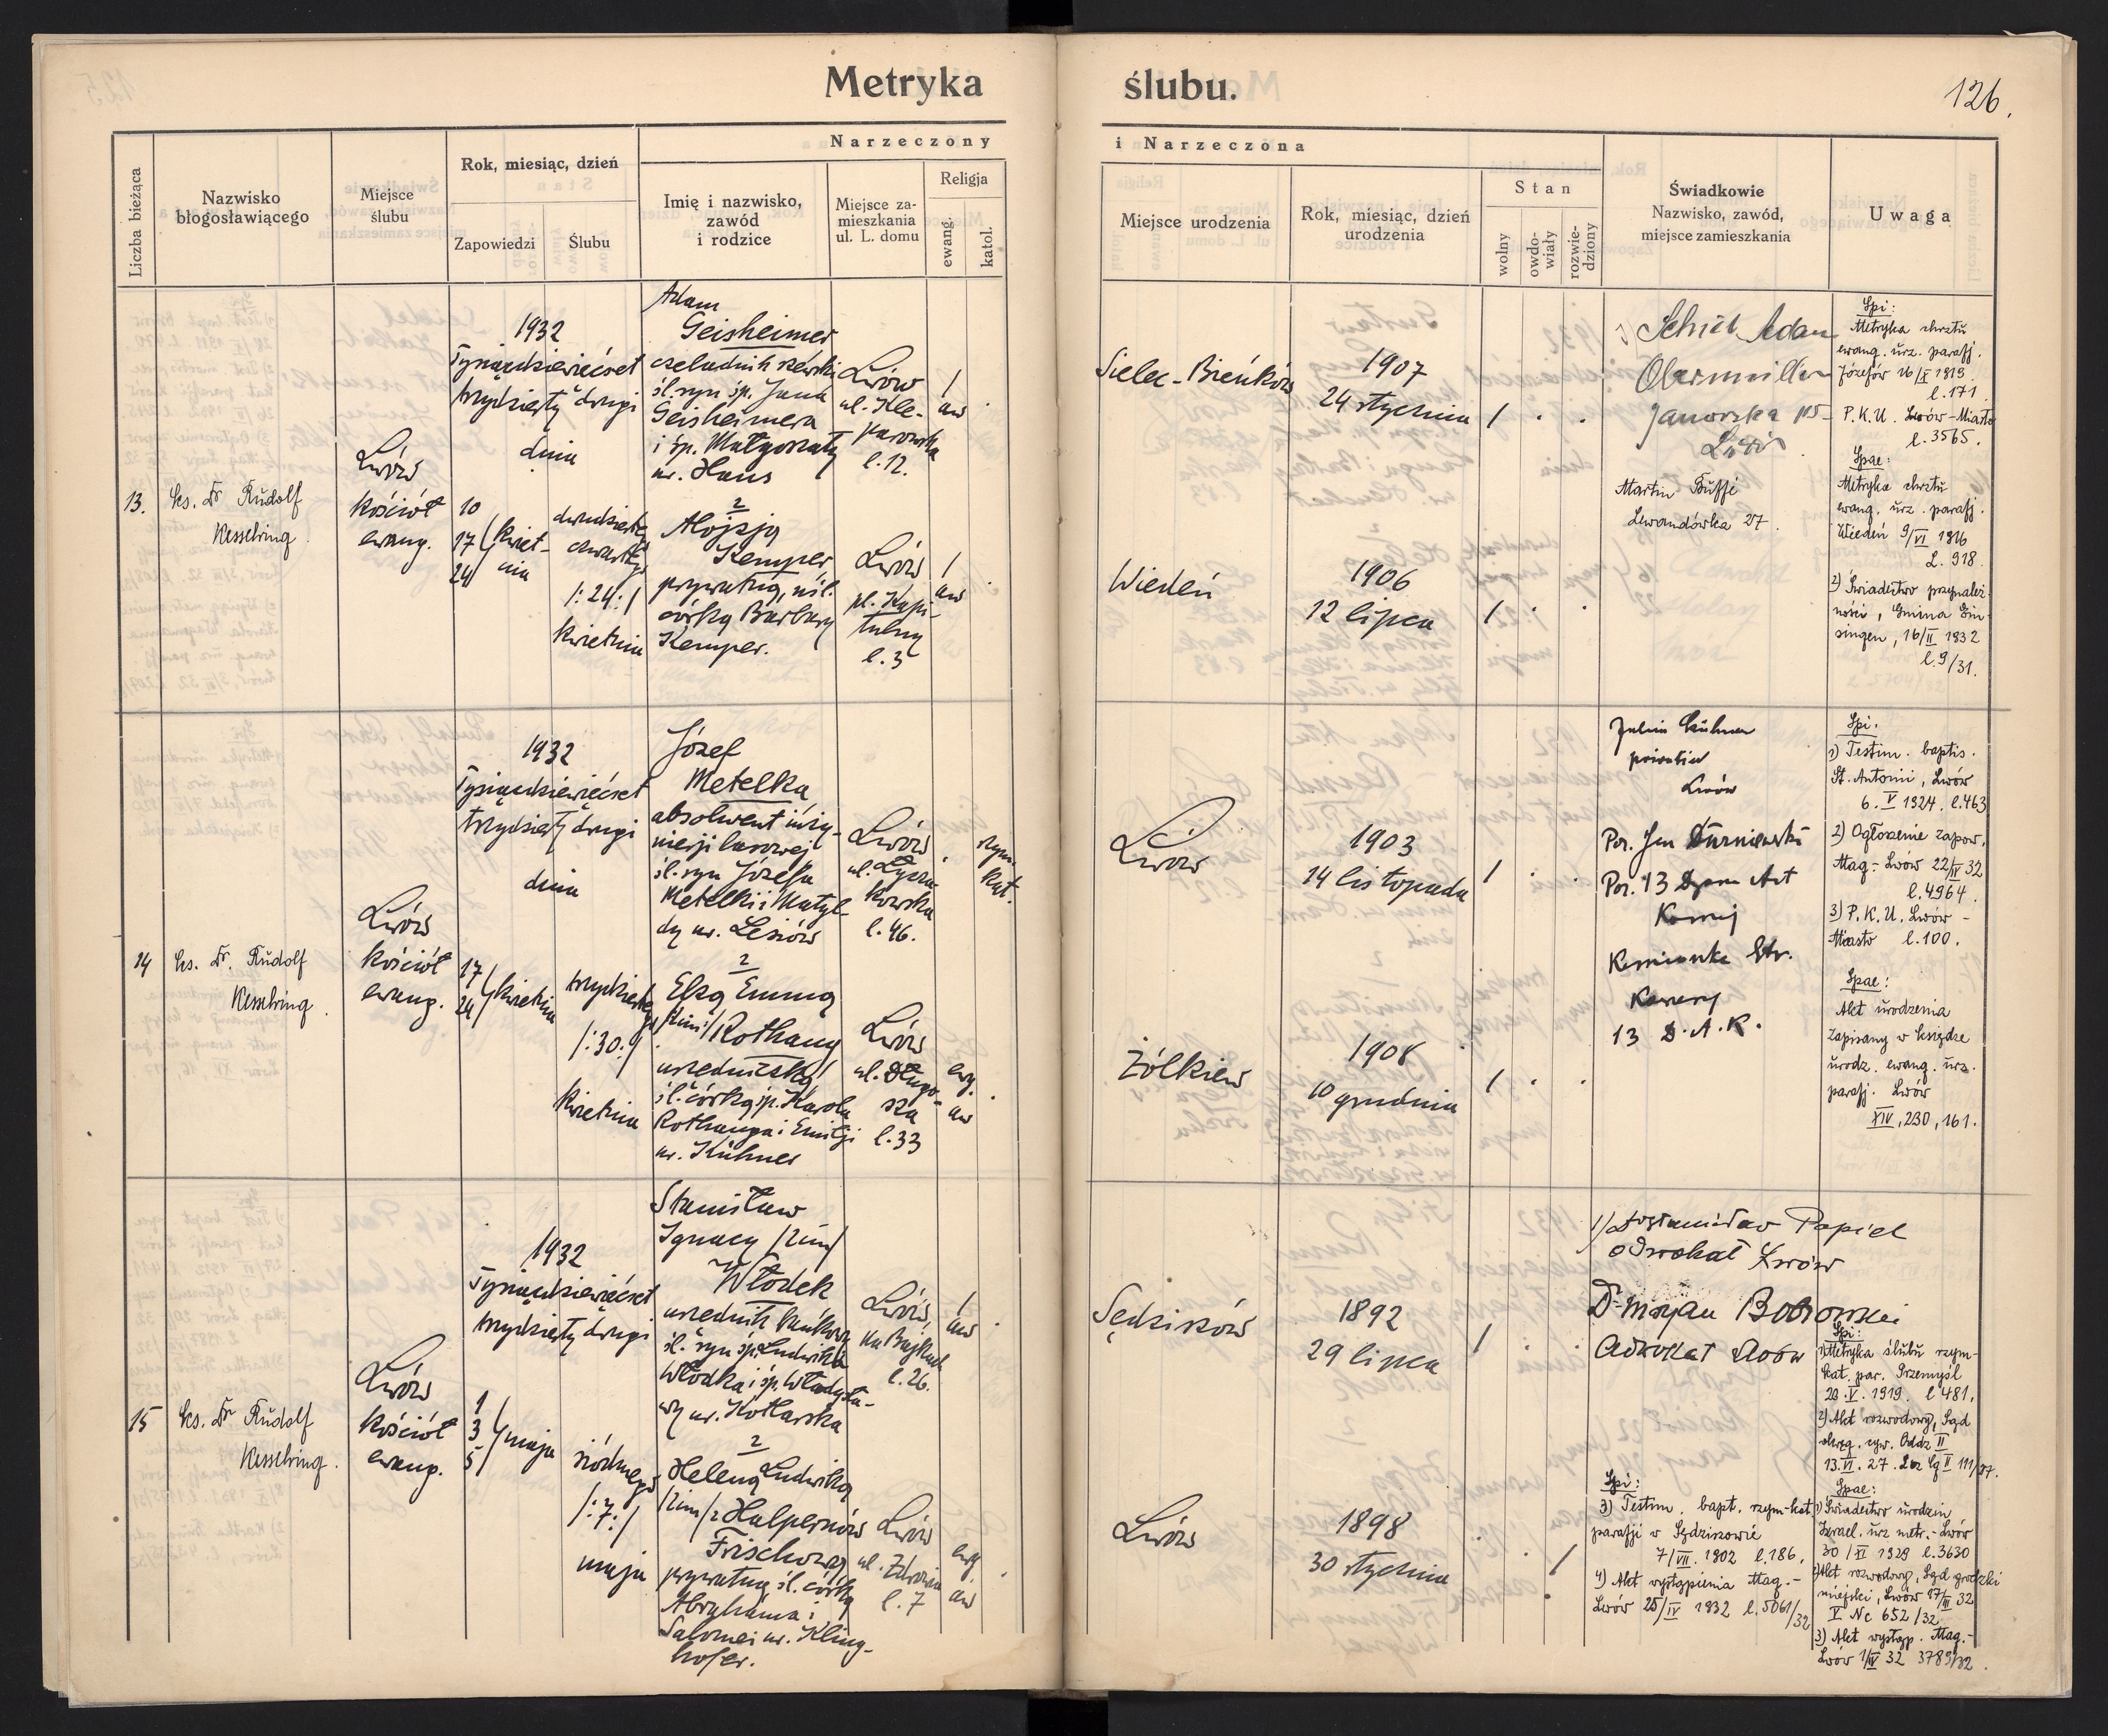 Metryka ślubu.
126.
Liczba bieżąca
Nazwisko
błogosławiącego
Miejsce
ślubu
Rok, miesiąc, dzień
Zapowiedzi
Ślubu
Narzeczony
i Narzeczona
Imię i nazwisko,
zawód
i rodzice
Miejsce za-
mieszkania
ul. L. domu
Religja
ewang.
katol.
Miejsce urodzenia
Rok, miesiąc, dzień
urodzenia
Stan
wolny
owdo-
wiały
rozwie-
dziony
Świadkowie
Nazwisko, zawód,
miejsce zamieszkania
Uwaga
13.
ks. Dr Rudolf
Kesselring.
Lwów
kościół
ewang.
1932
Tysiącdziewięćset
trzydziesty drugi
dnia
10
17 kwiet-
24 nia
dwudziestego
czwartego
/:24:/
kwietnia
Adam
Geisheimer
czeladnik szewski
śl. syn śp. Jana
Geisheimera
i śp. Małgorzaty
ur. Haus
Lwów
ul. Kle-
parowska
l. 12.
1
aw
z
Alojzją
Kemper
prywatną, nśl.
córką Barbary
Kemper.
Lwów
pl. Kapi-
tulny
l. 3
1
aw
Sielec-Bieńków
1907
24 stycznia
1
Wiedeń
1906
12 lipca
1
Schick Adam
Obermüller
Janowska 115
Lwów
Martin Buffi
Lewandówka 27.
Spi:
Metryka chrztu
ewang. urz. parafj.
Józefów 16/X 1919
l. 171.
P.K.U. Lwów-Miasto
l. 3565.
Spae:
Metryka chrztu
ewang. urz. parafj.
Wiedeń 9/VI 1916
L. 918.
2) Świadectwo przynależ-
ności, Gmina Gin-
singen, 16/II 1932
l. 9/31.
14
ks. Dr. Rudolf
Kesselring.
Lwów
kościół
ewang.
1932
Tysiącdziewięćset
trzydziesty drugi
dnia
17
24 kwietnia
trzydziestego
/:30:/
kwietnia
Józef
Metelka
absolwent inży-
nierji lasowej
śl. syn Józefa
Metelki i Matyl-
dy ur. Lesiów
Lwów
ul. Łycza-
kowska
l. 46.
rzym.
kat.
z
Elzą Emmą
/2im/ Rothaug
urzędniczką
śl. córką śp. Karola
Rothauga i Emilji
ur. Kühner
Lwów
ul. Długo-
sza
l. 33
ewg.
aw
Lwów
1903
14 listopada
1
Żółkiew
1908
10 grudnia
1
Julius Kühner
Lwów
Por. 13 Dyonu Art
Konnej
Kamionka Str.
13 D.A.K.
Spi.
1) Testim. baptis.
St. Antonii, Lwów
6.V 1924. l. 463
2) Ogłoszenie zapow.
Mag.-Lwów 22/IV 32
l. 4964.
3) P.K.U. Lwów-
Miasto l. 100.
Spae:
Akt urodzenia
zapisany w księdze
urodz. ewang. urz.
parafj. Lwów
XIV, 230, 161.
15
ks. Dr Rudolf
Kesselring.
Lwów
kościół
ewang.
1932
Tysiącdziewięćset
trzydziesty drugi
1
3 maja
5
siódmego
/:7:/
maja
Stanisław
Ignacy /2im/
Włodek
urzędnik bankowy
śl. syn śp. Ludwika
Włodka i śp. Władysła-
wy ur. Kotlarska
Lwów,
na Bajkach
l. 26.
1
aw
z
Heleną Ludwiką
/2im/ z Halpernów
Frischową
prywatną śl. córką
Abrahama i
Salomei ur. Kling-
hofer.
Lwów
ul. Zdrowia
l. 7
ewg.
aw
Sędziszów
1892
29 lipca
1
Lwów
1898
30 stycznia
1
1) Stanisław Papiel
adwokat Lwów
Dr Maryan Borowski
Adwokat Lwów
Spi:
1) Metryka ślubu rzym-
kat. par. Przemyśl
28.V. 1919. l. 481.
2) Akt rozwodowy, Sąd
okręg. cyw. Oddz II
13.VI.27. Lcz Cg II 111/27.
Spi:
3) Testim. bapt. rzym-kat.
parafji w Sędziszowie
7/VII. 1902 l. 186.
4) Akt wystąpienia Mag.-
Lwów 25/IV 1932 l. 5061/32
Spae:
1) Świadectwo urodzin
Izrael. urz metr.-Lwów
30/XI 1929 l. 3630
2) Akt rozwodowy, Sąd grodzki
miejski, Lwów 17/III 32
V Nc 652/32
3) Akt wystąp. Mag.-
Lwów 1/IV 32 3789/32.